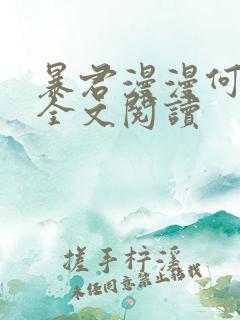 暴君漫漫何
全文閱讀
搓手梓溪
未经同意禁止转载